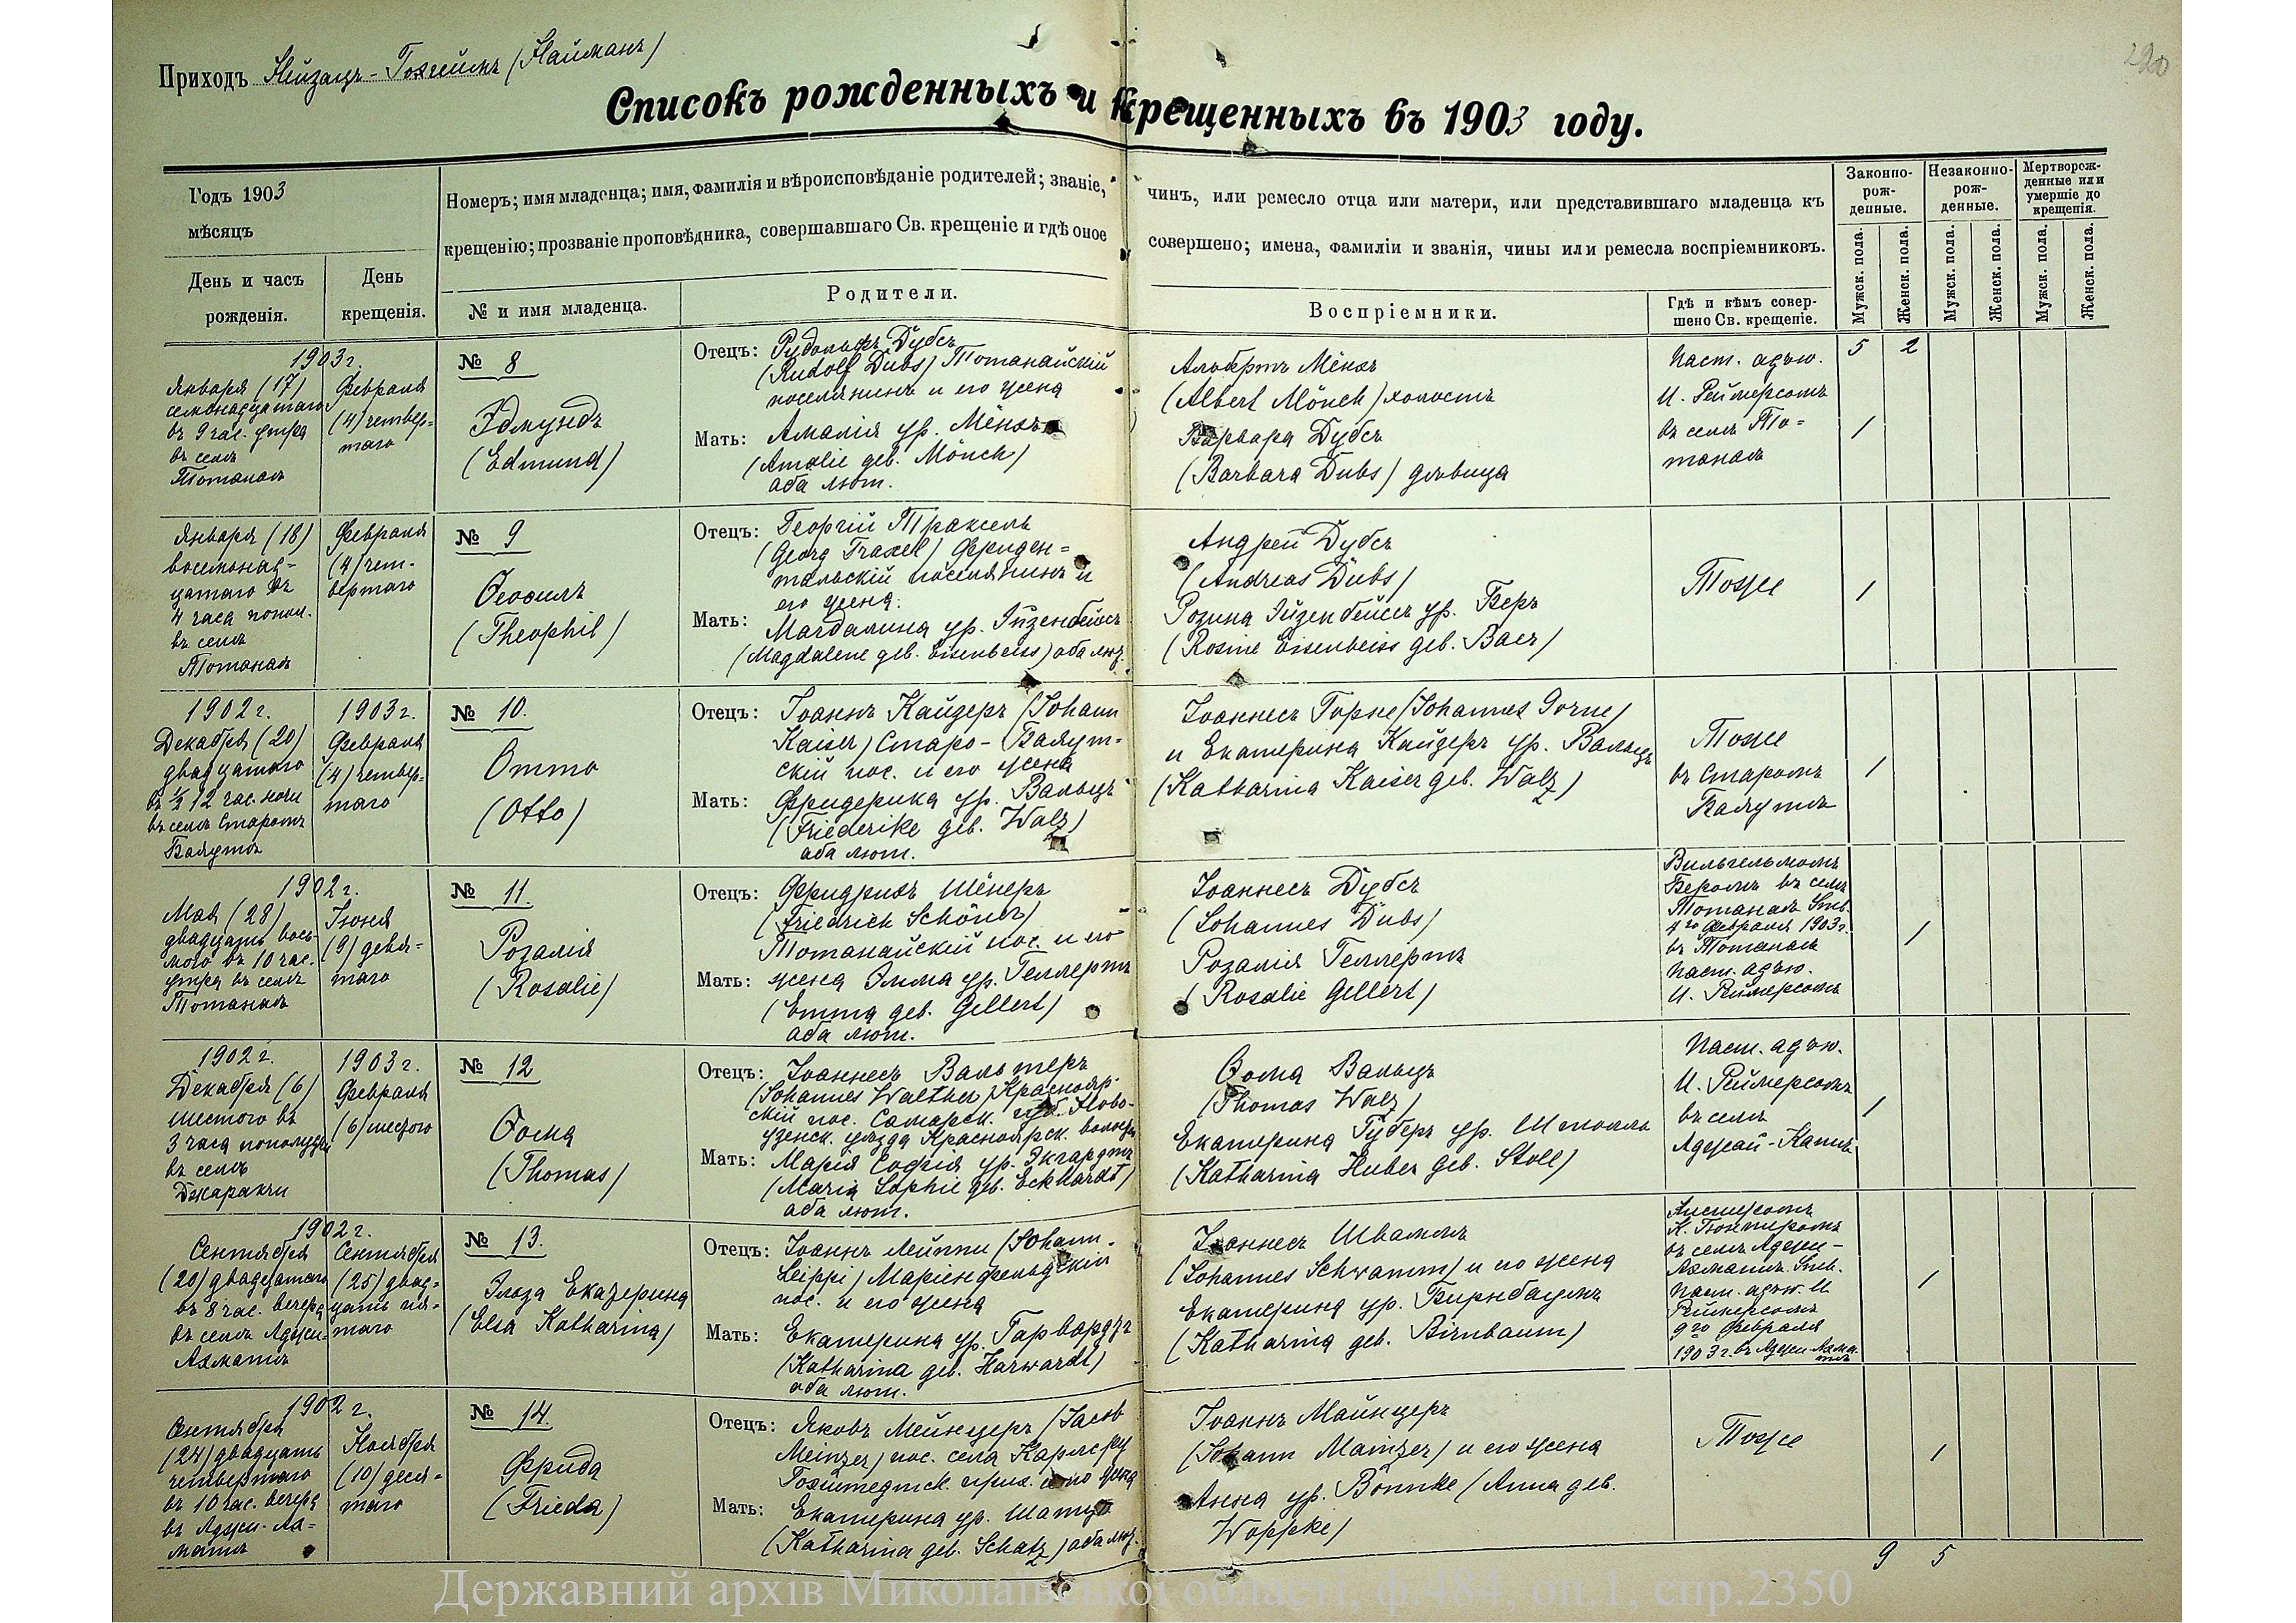 Приходъ Нейзацъ-Гохгеймъ (Найманъ)
220
Списокъ рожденныхъ и крещенныхъ въ 1903 году.
Годъ 1903
мѣсяцъ
День и часъ
рожденія.
День
крещенія.
Номеръ; имя младенца; имя, фамилія и вѣроисповѣданіе родителей; званіе,
крещенію; прозваніе проповѣдника, совершавшаго Св. крещеніе и гдѣ оное
№ и имя младенца.
Родители.
чинъ, или ремесло отца или матери, или представившаго младенца къ
совершено; имена, фамиліи и званія, чины или ремесла воспріемниковъ.
Воспріемники.
Гдѣ и кѣмъ совер-
шено Св. крещеніе.
Законно-
рож-
денные.
Незаконно-
рож-
денные.
Мертворож-
денные или
умершіе до
крещенія.
Мужск. пола.
Женск. пола.
Мужск. пола.
Женск. пола.
Мужск. пола.
Женск. пола.
1903 г.
Января (17)
семонадцатаго
въ 9 час. утра
въ селѣ
Тотанаѣ
Февраля
(4) четвер-
таго
№ 8
Эдмундъ
(Edmund)
Отецъ: Рудольфъ Дубсъ
(Rudolf Dubs) Тотанайскій
поселянинъ и его жена
Мать: Амалія ур. Мёнхъ
(Amalie geb. Mönch)
оба лют.
Альбертъ Мёнхъ
(Albert Mönch) холостъ
Варвара Дубсъ
(Barbara Dubs) дѣвица
Паст. адъю.
И. Реймерсомъ
въ селѣ То-
танаѣ
5 2
1
Января (18)
восемонад-
цатаго въ
4 часа попол.
въ селѣ
Тотанаѣ
Февраля
(4) чет-
вертаго
№ 9
Ѳеофилъ
(Theophil)
Отецъ: Георгій Траксель
(Georg Traxel) Фриден-
тальскій поселянинъ и
его жена.
Мать: Магдалина ур. Эйзенбейсъ
(Magdalene geb. Eisenbeiss) оба лют.
Андрей Дубсъ
(Andreas Dubs)
Розина Эйзенбейсъ ур. Беръ
(Rosine Eisenbeiss geb. Baer)
Тоже
1
1902 г.
Декабря (20)
двадцатаго
въ ½ 12 час. ночи
въ селѣ Старомъ
Баяутѣ
1903 г.
Февраля
(4) четвер-
таго
№ 10.
Отто
(Otto)
Отецъ: Іоаннъ Кайзеръ (Johann
Kaiser) Старо-Баяут-
скій пос. и его жена
Мать: Фридерика ур. Вальцъ
(Friederike geb. Walz)
оба лют.
Іоаннесъ Горне (Johannes Gorne)
и Екатерина Кайзеръ ур. Вальцъ
(Katharina Kaiser geb. Walz)
Тоже
въ Старомъ
Баяутѣ
1
1902 г.
Мая (28)
двадцать вось-
мого въ 10 час.
утра въ селѣ
Тотанаѣ
Іюня
(9) девя-
таго
№ 11.
Розалія
(Rosalie)
Отецъ: Фридрихъ Шёнеръ
(Friedrich Schöner)
Тотанайскій пос. и его
Мать: жена Эмма ур. Геллертъ
(Emma geb. Gellert)
оба лют.
Іоаннесъ Дубсъ
(Johannes Dubs)
Розалія Геллертъ
(Rosalie Gellert)
Вильгельмомъ
Беромъ въ селѣ
Тотанаѣ
4го Февраля 1903 г.
въ Тотанаѣ
паст. адъю.
И. Реймерсомъ
1
1902 г.
Декабря (6)
шестого въ
3 часа пополудни
въ селѣ
Джаракчи
1903 г.
Февраля
(6) шестого
№ 12
Ѳома
(Thomas)
Отецъ: Іоаннесъ Вальтеръ
(Johannes Walther) Краснояр-
скій пос. Самарск. губ. Ново-
узенск. уѣзда Красноярск. волости
Мать: Марія Софія ур. Экгардтъ
(Maria Sophie geb. Eckhardt)
оба лют.
Ѳома Вальцъ
(Thomas Walz)
Екатерина Губеръ ур. Штолль
(Katharina Huber geb. Stoll)
Паст. адъю.
И. Реймерсомъ
въ селѣ
Аджай-Катъ
1
1902 г.
Сентября
(20) двадцатаго
въ 8 час. вечера
въ селѣ Аджи-
Ахматѣ
Сентября
(25) двад-
цать пя-
таго
№ 13.
Эльза Екатерина
(Elsa Katharina)
Отецъ: Іоаннъ Лейппи (Johann
Leippi) Маріенфельдскій
пос. и его жена
Мать: Екатерина ур. Гарвардтъ
(Katharina geb. Harwardt)
оба лют.
Іоаннесъ Шваммъ
(Johannes Schwamm) и его жена
Екатерина ур. Бирнбаумъ
(Katharina geb. Birnbaum)
К. Гюнтеромъ
въ селѣ Аджи-
Ахматѣ
паст. адъю. И.
Реймерсомъ
9го Февраля
1903 г. въ Аджи-Ахма-
тѣ
1
1902 г.
Сентября
(24) двадцать
четвертаго
въ 10 час. вечера
въ Аджи-Ах-
матѣ
Ноября
(10) деся-
таго
№ 14.
Фрида
(Frieda)
Отецъ: Яковъ Мейнцеръ (Jacob
Meinzer) пос. села Карлсру
Гохштедтск. прих. и его жена
Мать: Екатерина ур. Шатцъ
(Katharina geb. Schatz) оба лют.
Іоаннъ Майнцеръ
(Johann Mainzer) и его жена
Анна ур. Вöппке (Anna geb.
Woppke)
Тоже
1
9 5
Державний архів Миколаївської області, ф.484, оп.1, спр.2350